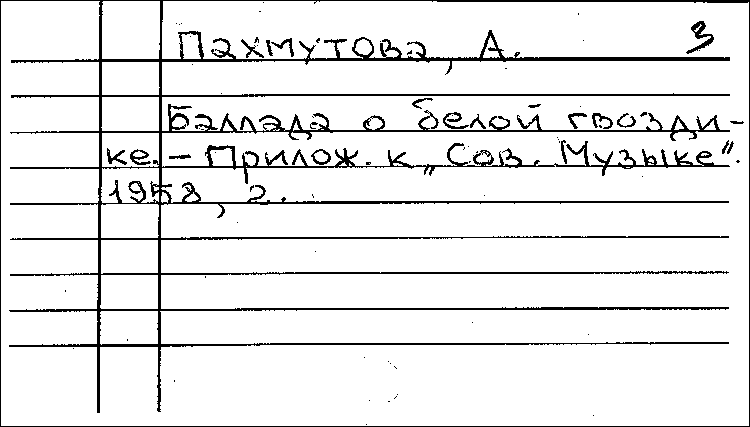 Пахмутова, А. 3
Баллада о белой гвозди-
ке. – Прилож. к „Сов. Музыке".
1958, 2.